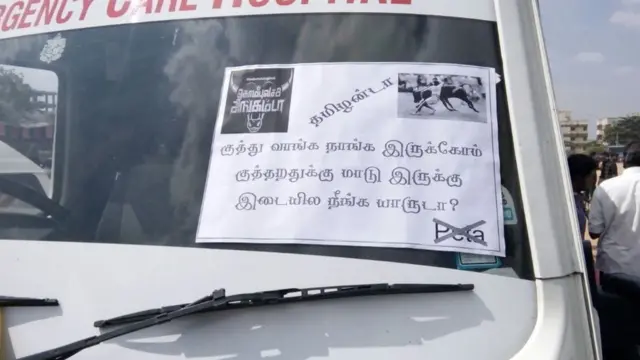 EMERGENCY CARE HOSPITAL
கொம்புவச்ச
சிங்கம்டா
தமிழன்டா
குத்து வாங்க நாங்க இருக்கோம்
குத்தறதுக்கு மாடு இருக்கு
இடையில நீங்க யாருடா?
Peta